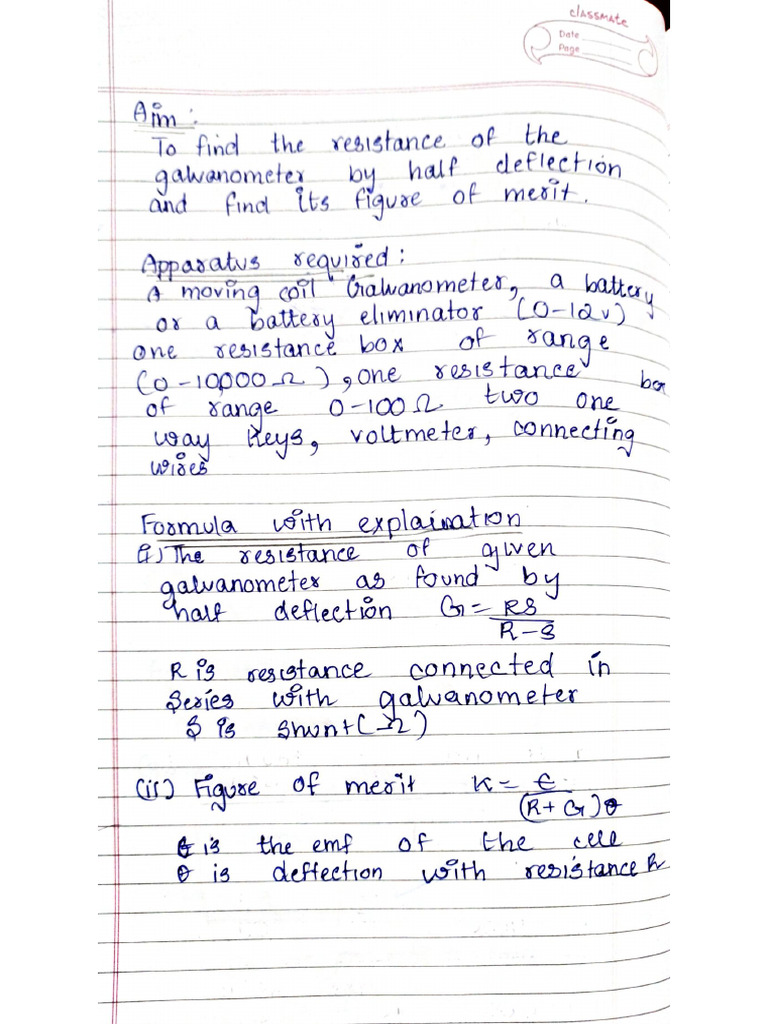 classmate
Date
Page
Aim:
To find the resistance of the
galvanometer by half deflection
and find its figure of merit.
Apparatus required:
A moving coil Galvanometer, a battery
or a battery eliminator (0-12v)
one resistance box of range
(0-10,000Ω), one resistance box
of range 0-100Ω two one
way keys, voltmeter, connecting
wires
Formula with explaination
(i) The resistance of given
galvanometer as found by
half deflection G = RS
R-S
R is resistance connected in
series with galvanometer
S is shunt (Ω)
(ii) Figure of merit K = E
(R+G)θ
E is the emf of the cell
θ is deflection with resistance R